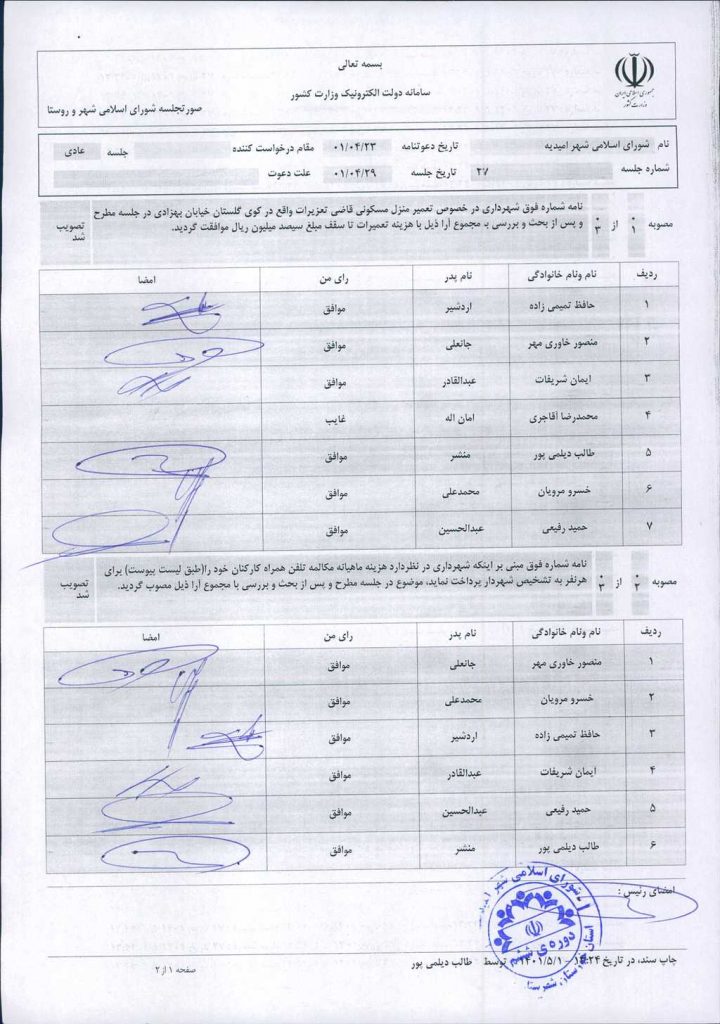 بسمه تعالی
سامانه دولت الکترونیک وزارت کشور
صورتجلسه شورای اسلامی شهر و روستا
جمهوری اسلامی ایران
وزارت کشور
نام شورای اسلامی شهر امیدیه تاریخ دعوتنامه ۰۱/۰۴/۲۳ مقام درخواست کننده جلسه عادی
شماره جلسه ۲۷ تاریخ جلسه ۰۱/۰۴/۲۹ علت دعوت
مصوبه ۰۱ از ۰۳ نامه شماره فوق شهرداری در خصوص تعمیر منزل مسکونی قاضی تعزیرات واقع در کوی گلستان خیابان بهزادی در جلسه مطرح
و پس از بحث و بررسی با مجموع آرا ذیل با هزینه تعمیرات تا سقف مبلغ سیصد میلیون ریال موافقت گردید. تصویب شد
ردیف نام ونام خانوادگی نام پدر رای من امضا
۱ حافظ تمیمی زاده اردشیر موافق
۲ منصور خاوری مهر جانعلی موافق
۳ ایمان شریفات عبدالقادر موافق
۴ محمدرضا آقاجری امان اله غایب
۵ طالب دیلمی پور منتشر موافق
۶ خسرو مرویان محمدعلی موافق
۷ حمید رفیعی عبدالحسین موافق
مصوبه ۰۲ از ۰۳ نامه شماره فوق مبنی بر اینکه شهرداری در نظردارد هزینه ماهیانه مکالمه تلفن همراه کارکنان خود را(طبق لیست پیوست) برای
هرنفر به تشخیص شهردار پرداخت نماید، موضوع در جلسه مطرح و پس از بحث و بررسی با مجموع آرا ذیل مصوب گردید. تصویب شد
ردیف نام ونام خانوادگی نام پدر رای من امضا
۱ منصور خاوری مهر جانعلی موافق
۲ خسرو مرویان محمدعلی موافق
۳ حافظ تمیمی زاده اردشیر موافق
۴ ایمان شریفات عبدالقادر موافق
۵ حمید رفیعی عبدالحسین موافق
۶ طالب دیلمی پور منتشر موافق
امضای رئیس :
شورای اسلامی شهر
دوره ی ششم
چاپ سند، در تاریخ ۱۴۰۱/۵/۱ توسط طالب دیلمی پور
صفحه ۱ از ۲